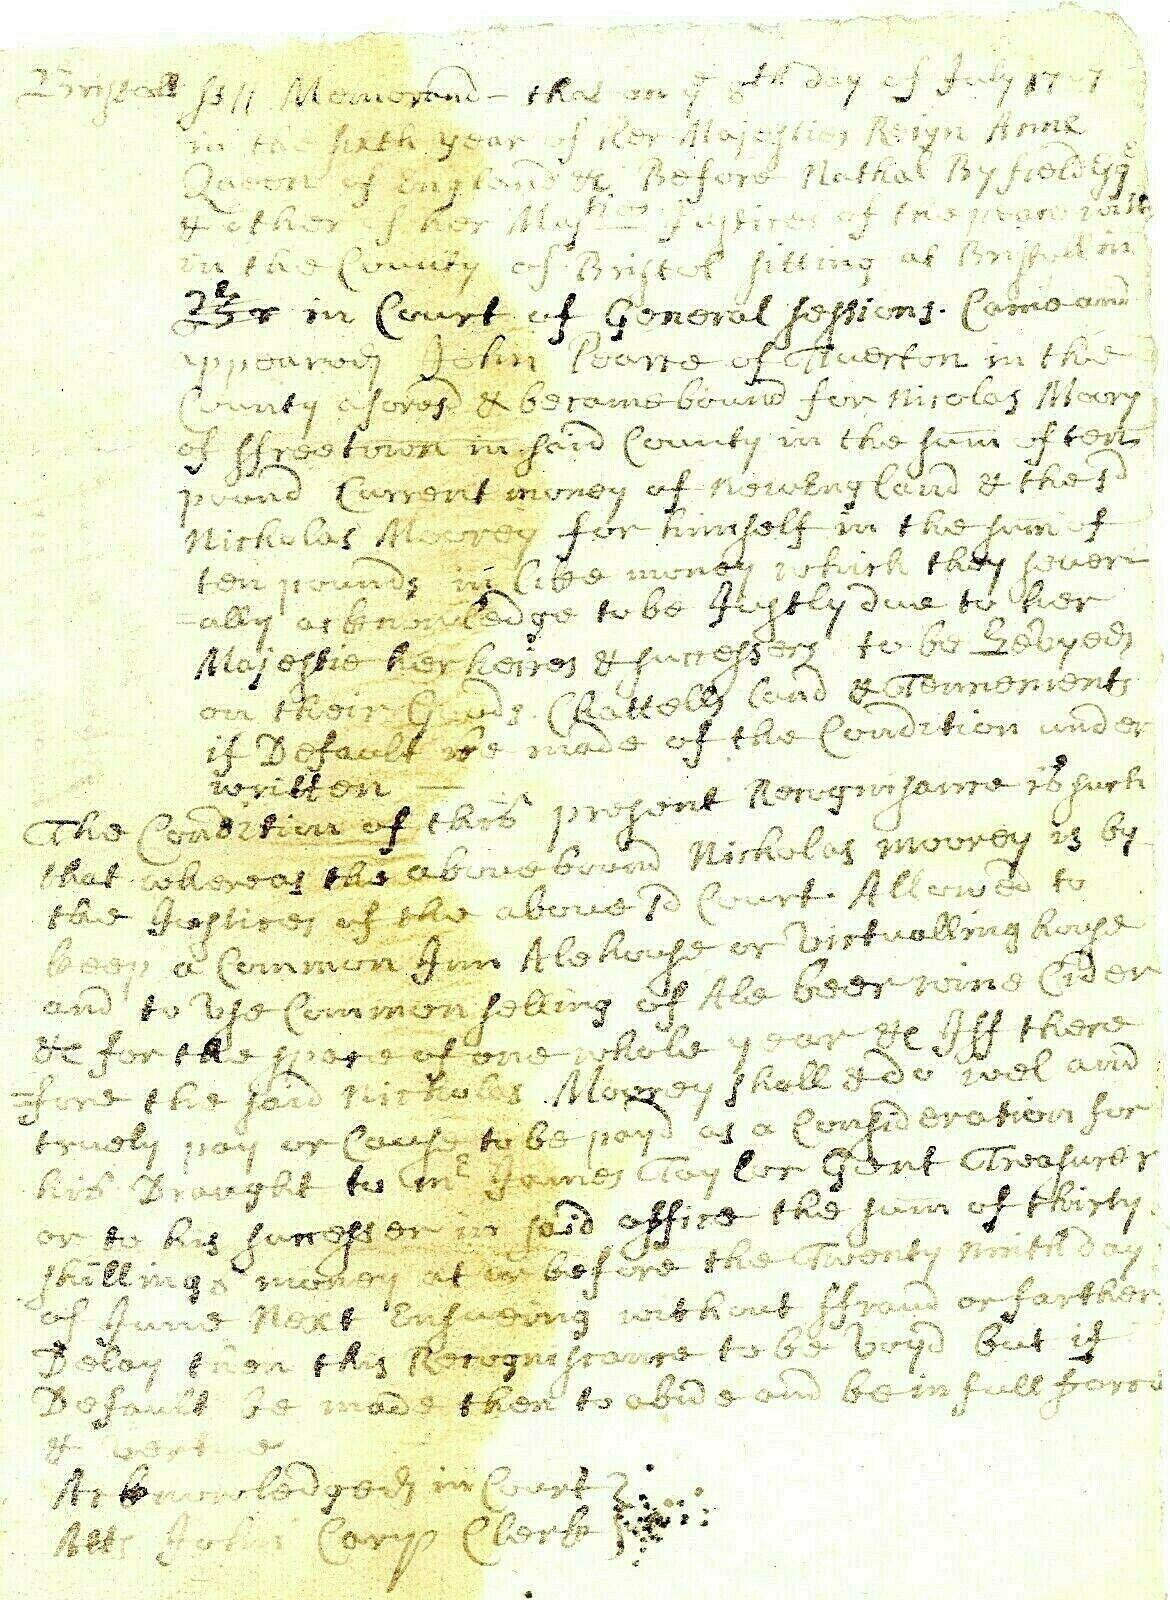 Bristoll ss// Memorand– that on ye 8th day of July 1707
in the sixth year of Her Majesties Reign Anne
Queen of England &c Before Nathal Byfield Esqe
& other of her Majties Justices of the peace with
in the County of Bristol sitting at Bristoll in
in Court of General sessions. Came and
appeared John Pearce of Tiverton in the
County aforesd & became bound for Nicolas Moory
of ffreetown in said County in the sum of ten
pound Current money of New England & the sd
Nicholas Moorey for himself in the sum of
ten pounds in like money which they sever
-ally acknowledge to be Justly due to her
Majestie her heires & successers to be Levyed
on their Goods Chattells Land & Tennements
if Default be made of the Condition under
written —
The Condition of this present Recognisance is such
that whereas the above bound Nicholas moorey is by
the Justices of the above sd Court Allowed to
keep a Common Inn Alehouse or Victualling house
and to Use Common selling of Ale beer wine Cider
&c for the space of one whole year &c Iff there
=fore the said Nicholas Moorey shall & do wel and
truely pay or Cause to be payd as a Consideration for
his Draught to mr James Taylor Gent Treasurer
or to his successer in said office the sum of thirty
shillings money at or before the Twenty ninth day
of June Next Ensueing without ffraud or farther
Delay then this Recogniscance to be Voyd but if
Default be made then to abide and be in full force
& vertue
Acknowledged in Court
Atts John Cary Clerk